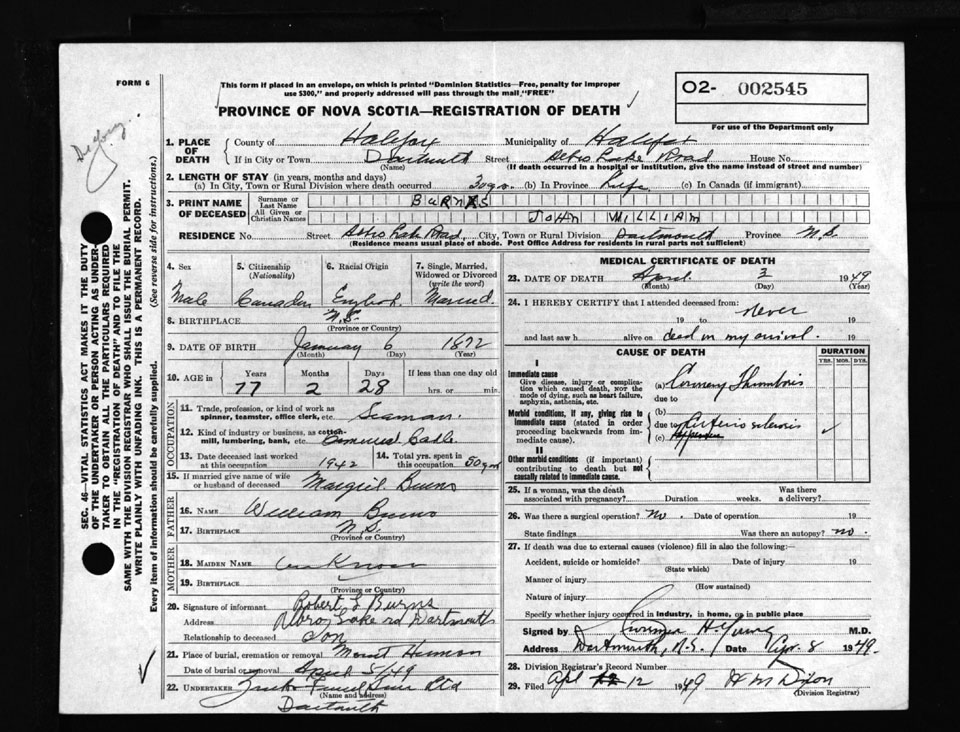 FORM 6
This form if placed in an envelope, on which is printed "Dominion Statistics—Free, penalty for improper
use $300," and properly addressed will pass through the mail "FREE"
PROVINCE OF NOVA SCOTIA—REGISTRATION OF DEATH
O2- 002545
For use of the Department only
SEC. 46—VITAL STATISTICS ACT MAKES IT THE DUTY
OF THE UNDERTAKER OR PERSON ACTING AS UNDER-
TAKER TO OBTAIN ALL THE PARTICULARS REQUIRED
IN THE "REGISTRATION OF DEATH" AND TO FILE THE
SAME WITH THE DIVISION REGISTRAR WHO SHALL ISSUE THE BURIAL PERMIT.
WRITE PLAINLY WITH UNFADING INK. THIS IS A PERMANENT RECORD.
Every item of information should be carefully supplied. (See reverse side for instructions.)
1. PLACE OF DEATH County of Halifax Municipality of Halifax
If in City or Town Dartmouth Street Lake Road House No.
(Name) (If death occurred in a hospital or institution, give the name instead of street and number)
2. LENGTH OF STAY (in years, months and days)
(a) In City, Town or Rural Division where death occurred 30 yrs. (b) In Province Life (c) In Canada (if immigrant)
3. PRINT NAME OF DECEASED Surname or Last Name BURNS
All Given or Christian Names JOHN WILLIAM
RESIDENCE No. Street Lake Road, City, Town or Rural Division Dartmouth Province N.S.
(Residence means usual place of abode. Post Office Address for residents in rural parts not sufficient)
4. Sex Male
5. Citizenship (Nationality) Canadian
6. Racial Origin English
7. Single, Married, Widowed or Divorced (write the word) Married
8. BIRTHPLACE N.S.
(Province or Country)
9. DATE OF BIRTH January 6 1872
(Month) (Day) (Year)
10. AGE in Years 77 Months 2 Days 28 If less than one day old hrs. or min.
OCCUPATION
11. Trade, profession, or kind of work as spinner, teamster, office clerk, etc. Seaman.
12. Kind of industry or business, as cotton-mill, lumbering, bank, etc. Cable
13. Date deceased last worked at this occupation 1942
14. Total yrs. spent in this occupation 50 yrs
15. If married give name of wife or husband of deceased Burns
FATHER
16. NAME William Burns
17. BIRTHPLACE N.S.
(Province or Country)
MOTHER
18. MAIDEN NAME
19. BIRTHPLACE
(Province or Country)
20. Signature of informant Robert L Burns
Address Albro Lake rd Dartmouth
Relationship to deceased Son
21. Place of burial, cremation or removal Mount Hermon
Date of burial or removal April 5/49
22. UNDERTAKER Ltd
(Name and address)
Dartmouth
MEDICAL CERTIFICATE OF DEATH
23. DATE OF DEATH April 3 1949
(Month) (Day) (Year)
24. I HEREBY CERTIFY that I attended deceased from:
never
19 to 19
and last saw h alive on dead on my arrival. 19
CAUSE OF DEATH DURATION
YRS. MOS. DYS.
I
Immediate cause
Give disease, injury or complication which caused death, not the mode of dying, such as heart failure, asphyxia, asthenia, etc.
(a) Coronary Thrombosis
due to
Morbid conditions, if any, giving rise to immediate cause (stated in order proceeding backwards from immediate cause).
(b)
due to Arterio sclerosis
(c)
II
Other morbid conditions (if important) contributing to death but not causally related to immediate cause.
25. If a woman, was the death associated with pregnancy? Duration weeks. Was there a delivery?
26. Was there a surgical operation? No. Date of operation 19
State findings Was there an autopsy? no.
27. If death was due to external causes (violence) fill in also the following:—
Accident, suicide or homicide? Date of injury 19
(State which)
Manner of injury
(How sustained)
Nature of injury
Specify whether injury occurred in industry, in home, or in public place
Signed by H Young M.D.
Address Dartmouth, N.S. Date Apr. 8 1949.
28. Division Registrar's Record Number
29. Filed Apl 12 1949 H M Dixon
(Division Registrar)